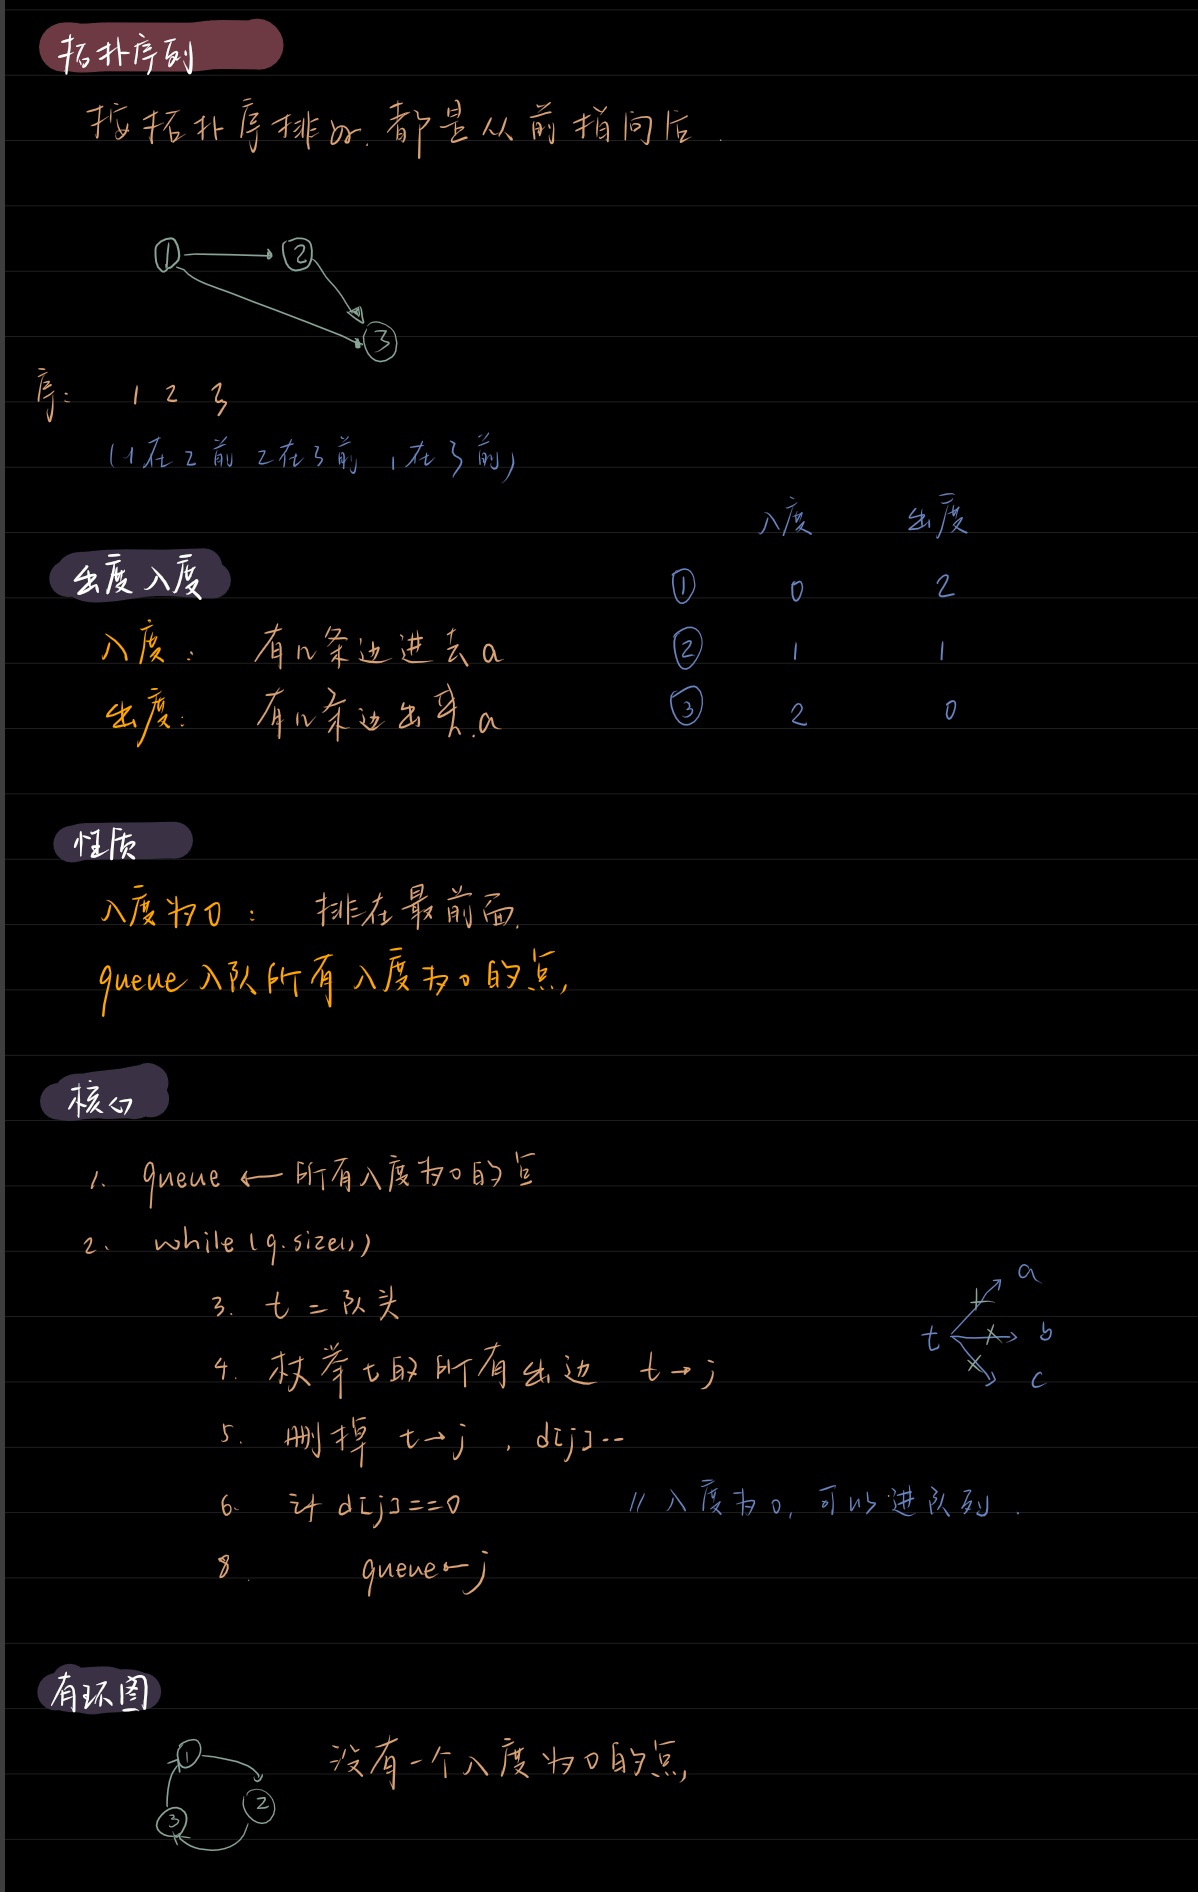 拓扑序列
按拓扑序排好.都是从前指向后.
1 2
3
序: 1 2 3
(1在2前 2在3前 1在3前)
入度 出度
出度入度
① 0 2
入度: 有几条边进去a
② 1 1
出度: 有几条边出来.a
③ 2 0
性质
入度为0: 排在最前面.
queue入队所有入度为0的点,
核心
1. queue ← 所有入度为0的点
2. while(q.size())
3. t = 队头
4. 枚举t的所有出边 t→j
5. 删掉 t→j , d[j]--
t a b c
6. if d[j]==0 // 入度为0, 可以进队列.
8. queue←j
有环图
1 2 3
没有一个入度为0的点,